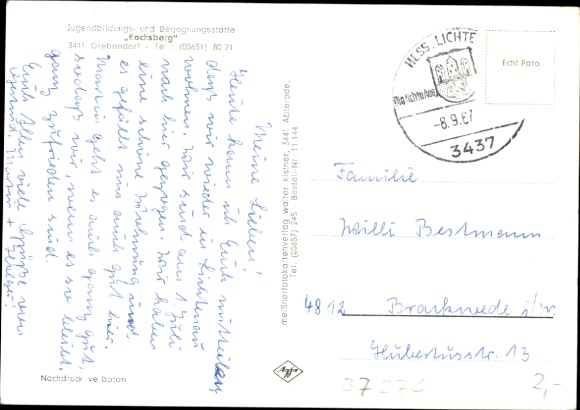 Jugendbildungs- und Begegnungsstätte
„Kochsberg"
3441 Grebendorf - Tel. (05651) 80 21
Meine Lieben!
Heute kann ich Euch mitteilen,
daß wir wieder in Lichtenau
wohnen. Wir sind am 1. Juli
nach hier gezogen. Wir haben
eine schöne Wohnung und
es gefällt uns auch gut hier.
geht es auch ganz gut,
sodaß wir, wenn es so bleibt,
ganz zufrieden sind.
Euch Allen viele Grüße von
Nachdruck verboten
meißnerfotokartenverlag walter kistner, 3441 Abterode,
Tel. (05657) 245 - Bestell-Nr. 11 144
HESS. LICHTE
-8.9.67
3437
Echt Foto
Familie
Willi Bestmann
4812 Brackwede i/w
Hubertusstr. 13
37276
2,-